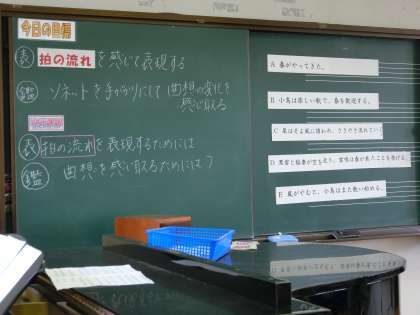 今日の目標
表 拍の流れを感じて表現する
鑑 ソネットを手がかりにして曲想の変化を
感じ取る
表 拍の流れを表現するためには
鑑 曲想を感じ取るためには?
A 春がやってきた。
B 小鳥は楽しい歌で、春を歓迎する。
C 泉はそよ風に誘われ、ささやき流れていく。
D 黒雲と稲妻が空を走り、雷鳴は春が来たことを告げる。
E 嵐がやむと、小鳥はまた歌い始める。